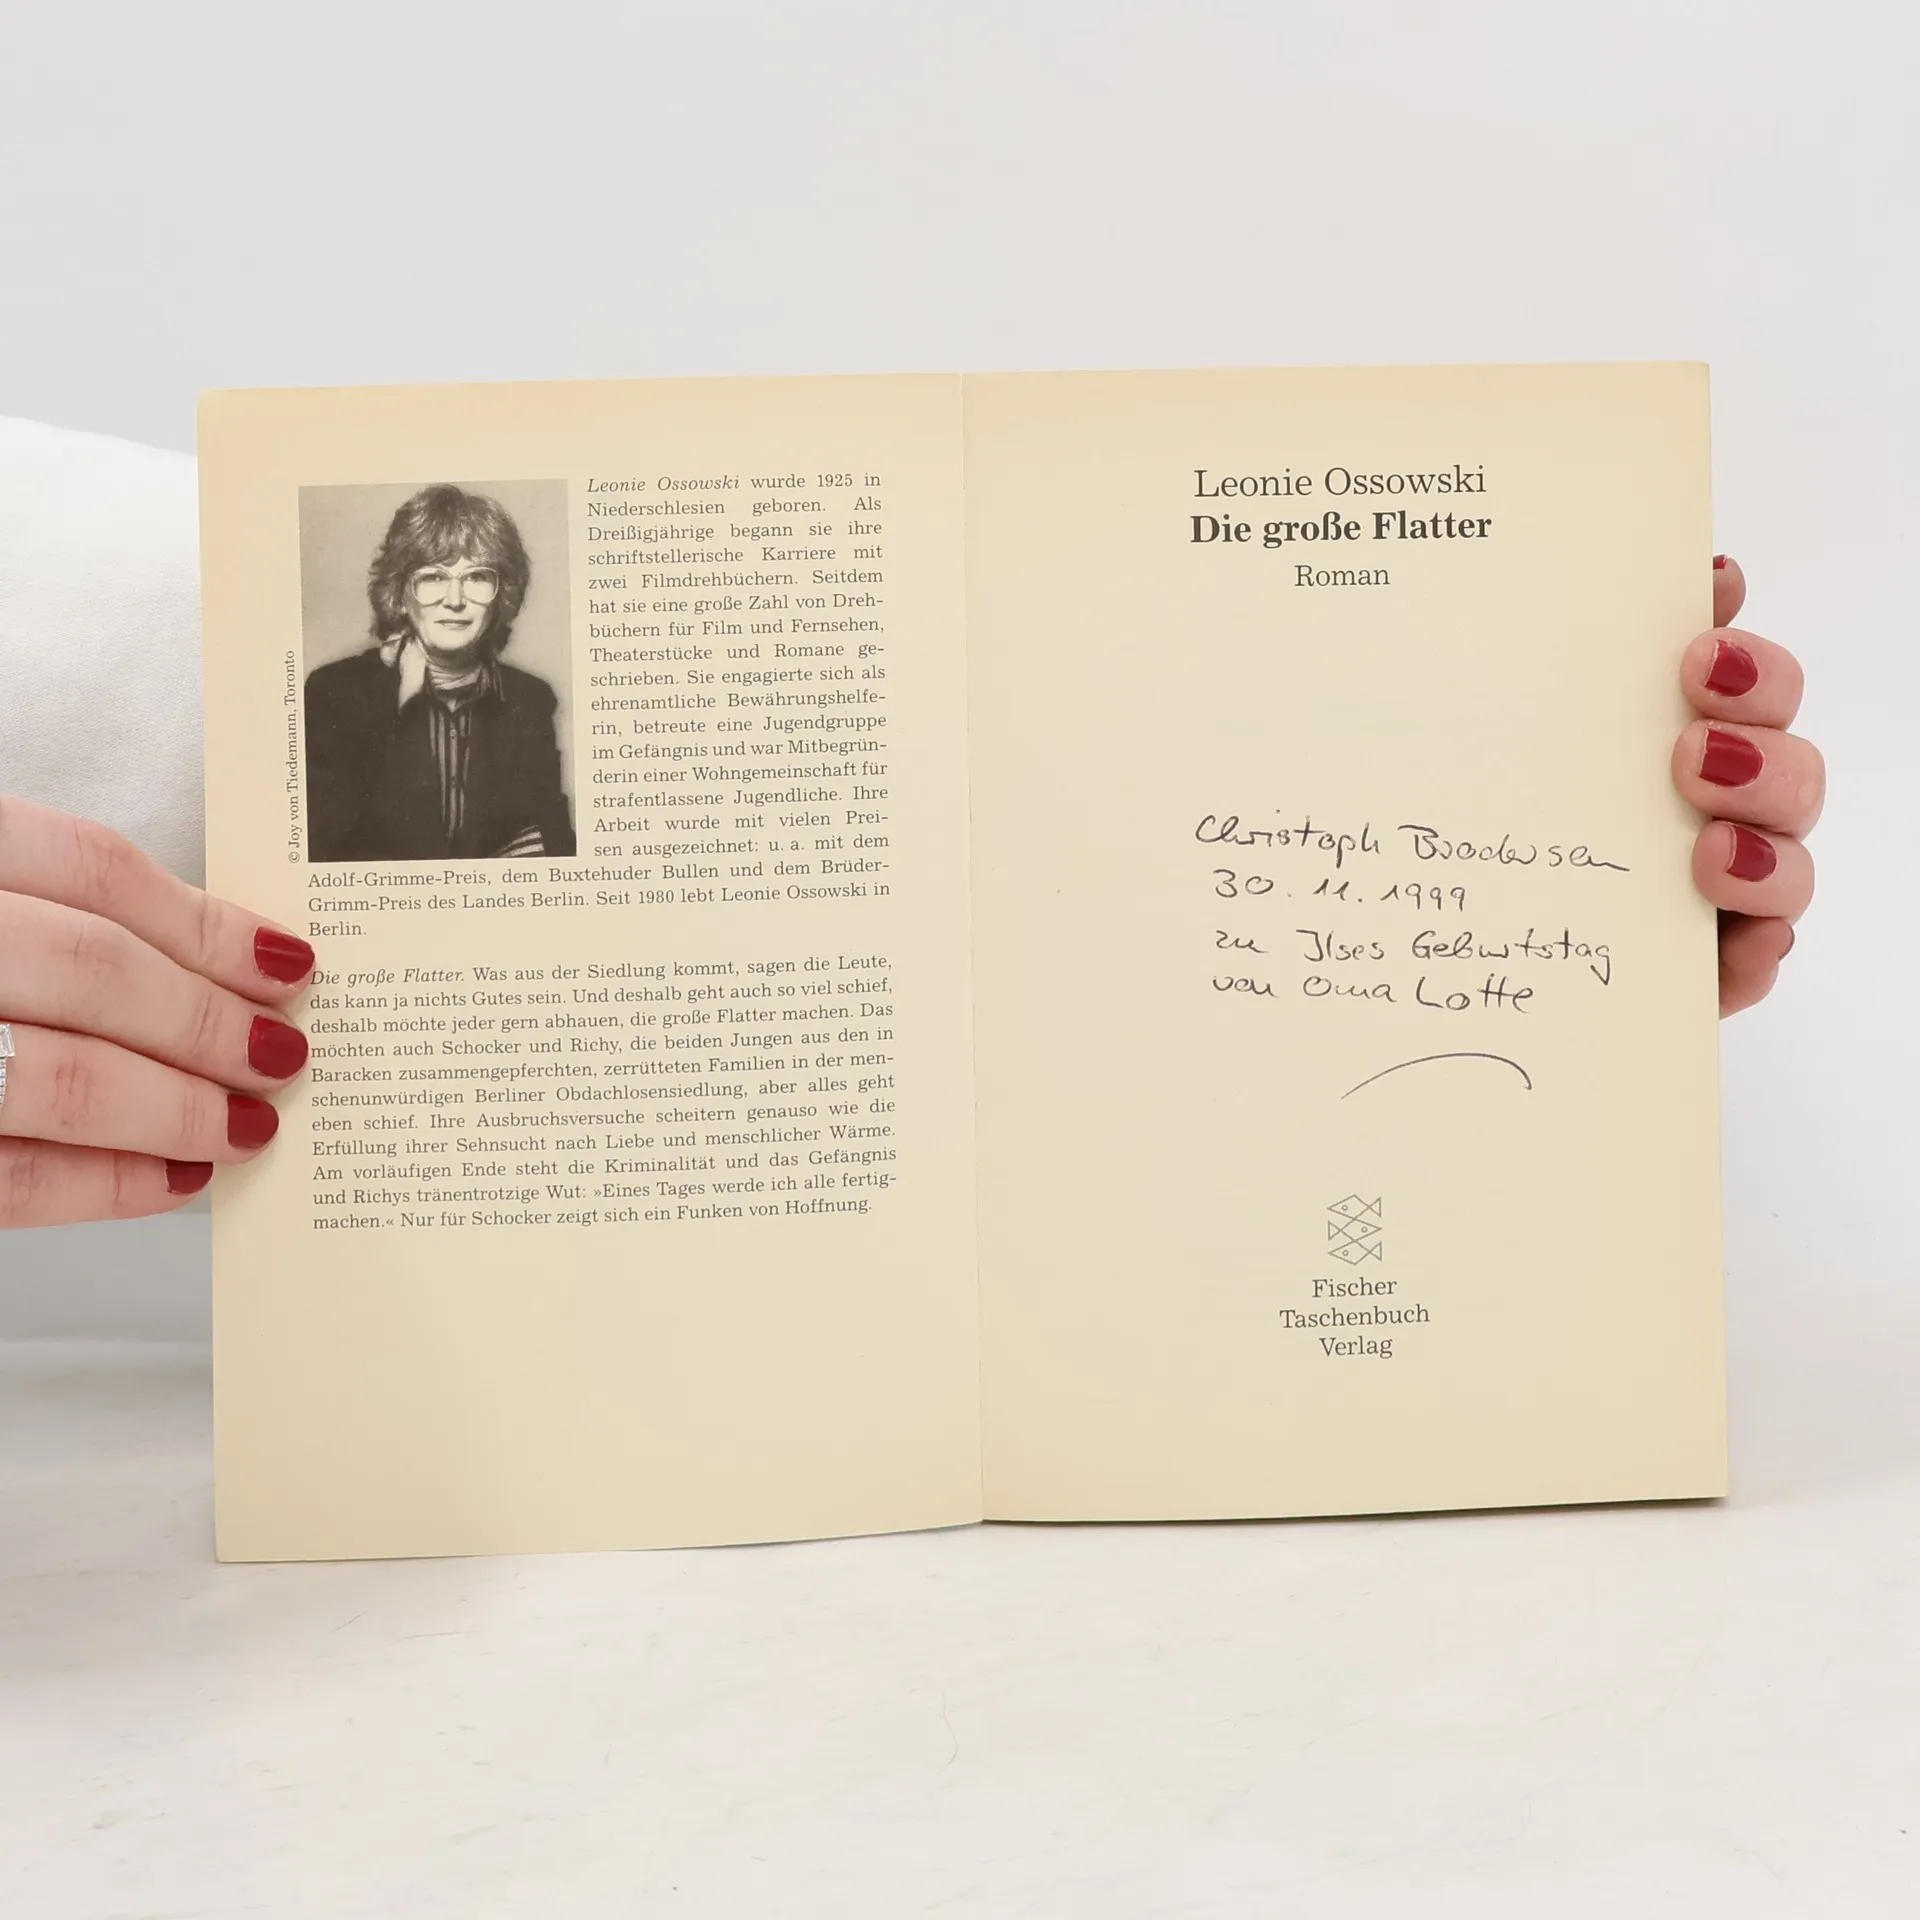 © Joy von Tiedemann, Toronto
Leonie Ossowski wurde 1925 in
Niederschlesien geboren. Als
Dreißigjährige begann sie ihre
schriftstellerische Karriere mit
zwei Filmdrehbüchern. Seitdem
hat sie eine große Zahl von Dreh-
büchern für Film und Fernsehen,
Theaterstücke und Romane ge-
schrieben. Sie engagierte sich als
ehrenamtliche Bewährungshelfe-
rin, betreute eine Jugendgruppe
im Gefängnis und war Mitbegrün-
derin einer Wohngemeinschaft für
strafentlassene Jugendliche. Ihre
Arbeit wurde mit vielen Prei-
sen ausgezeichnet: u. a. mit dem
Adolf-Grimme-Preis, dem Buxtehuder Bullen und dem Brüder-
Grimm-Preis des Landes Berlin. Seit 1980 lebt Leonie Ossowski in
Berlin.
Die große Flatter. Was aus der Siedlung kommt, sagen die Leute,
das kann ja nichts Gutes sein. Und deshalb geht auch so viel schief,
deshalb möchte jeder gern abhauen, die große Flatter machen. Das
möchten auch Schocker und Richy, die beiden Jungen aus den in
Baracken zusammengepferchten, zerrütteten Familien in der men-
schenunwürdigen Berliner Obdachlosensiedlung, aber alles geht
eben schief. Ihre Ausbruchsversuche scheitern genauso wie die
Erfüllung ihrer Sehnsucht nach Liebe und menschlicher Wärme.
Am vorläufigen Ende steht die Kriminalität und das Gefängnis
und Richys tränentrotzige Wut: »Eines Tages werde ich alle fertig-
machen.« Nur für Schocker zeigt sich ein Funken von Hoffnung.
Leonie Ossowski
Die große Flatter
Roman
Christoph Brodersen
30. 11. 1999
zu Ilses Geburtstag
von Oma Lotte
Fischer
Taschenbuch
Verlag